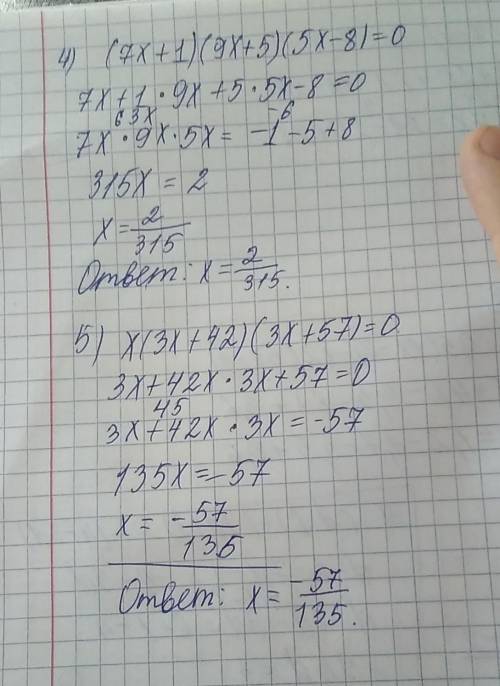 4) (7x+1)(9x+5)(5x-8)=0
7x+1·9x+5·5x-8=0
63x -6
7x·9x·5x= -1-5+8
315x = 2
x= 2/315
Ответ: x= 2/315.
5) x(3x+42)(3x+57)=0
3x+42x·3x+57=0
45
3x+42x·3x=-57
135x=-57
x= -57/135
Ответ: x= -57/135.